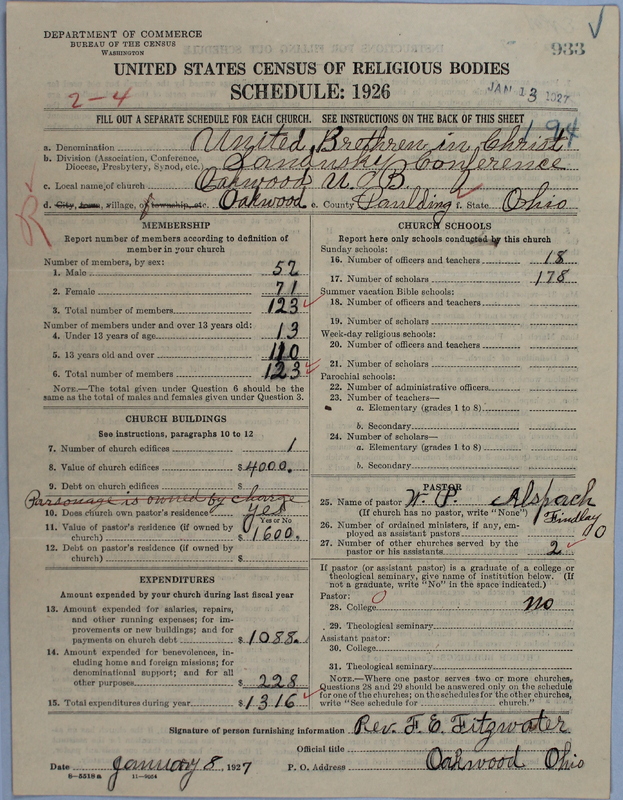 DEPARTMENT OF COMMERCE
BUREAU OF THE CENSUS
WASHINGTON
933
UNITED STATES CENSUS OF RELIGIOUS BODIES
2-4
SCHEDULE: 1926
JAN 13 1927
FILL OUT A SEPARATE SCHEDULE FOR EACH CHURCH. SEE INSTRUCTIONS ON THE BACK OF THIS SHEET
194
a. Denomination United Brethren in Christ
b. Division (Association, Conference, Diocese, Presbytery, Synod, etc.) Sandusky Conference
c. Local name of church Oakwood U.B.
d. City, town, village, or township, etc. Oakwood e. County Paulding f. State Ohio
R
MEMBERSHIP
Report number of members according to definition of
member in your church
Number of members, by sex:
1. Male 52
2. Female 71
3. Total number of members 123
Number of members under and over 13 years old:
4. Under 13 years of age 13
5. 13 years old and over 110
6. Total number of members 123
NOTE.—The total given under Question 6 should be
same as the total of males and females given under Question 3.
CHURCH BUILDINGS
See instructions, paragraphs 10 to 12
7. Number of church edifices 1
8. Value of church edifices $4000.
9. Debt on church edifices $
Parsonage is owned by charge
10. Does church own pastor's residence yes
Yes or No
11. Value of pastor's residence (if owned by
church) $1600.
12. Debt on pastor's residence (if owned by
church) $
EXPENDITURES
Amount expended by your church during last fiscal year
13. Amount expended for salaries, repairs,
and other running expenses; for im-
provements or new buildings; and for
payments on church debt $1088.
14. Amount expended for benevolences, in-
cluding home and foreign missions; for
denominational support; and for all
other purposes $228
15. Total expenditures during year $1316
CHURCH SCHOOLS
Report here only schools conducted by this church
Sunday schools:
16. Number of officers and teachers 18
17. Number of scholars 178
Summer vacation Bible schools:
18. Number of officers and teachers
19. Number of scholars
Week-day religious schools:
20. Number of officers and teachers
21. Number of scholars
Parochial schools:
22. Number of administrative officers
23. Number of teachers—
a. Elementary (grades 1 to 8)
b. Secondary
24. Number of scholars—
a. Elementary (grades 1 to 8)
b. Secondary
PASTOR
25. Name of pastor W. P. Alspach
(If church has no pastor, write "None") Findlay
26. Number of ordained ministers, if any, em-
ployed as assistant pastors
27. Number of other churches served by the
pastor or his assistants 2
If pastor (or assistant pastor) is a graduate of a college or
theological seminary, give name of institution below. (If
not a graduate, write "No" in the space indicated.)
Pastor:
28. College no
29. Theological seminary
Assistant pastor:
30. College
31. Theological seminary
NOTE.—Where one pastor serves two or more churches,
Questions 28 and 29 should be answered only on the schedule
for one of the churches; on the schedules for the other churches,
write "See schedule for church."
Signature of person furnishing information Rev. F. E. Fitzwater
Official title
Date January 8, 1927 P. O. Address Oakwood Ohio
8-5518 a 11-9064